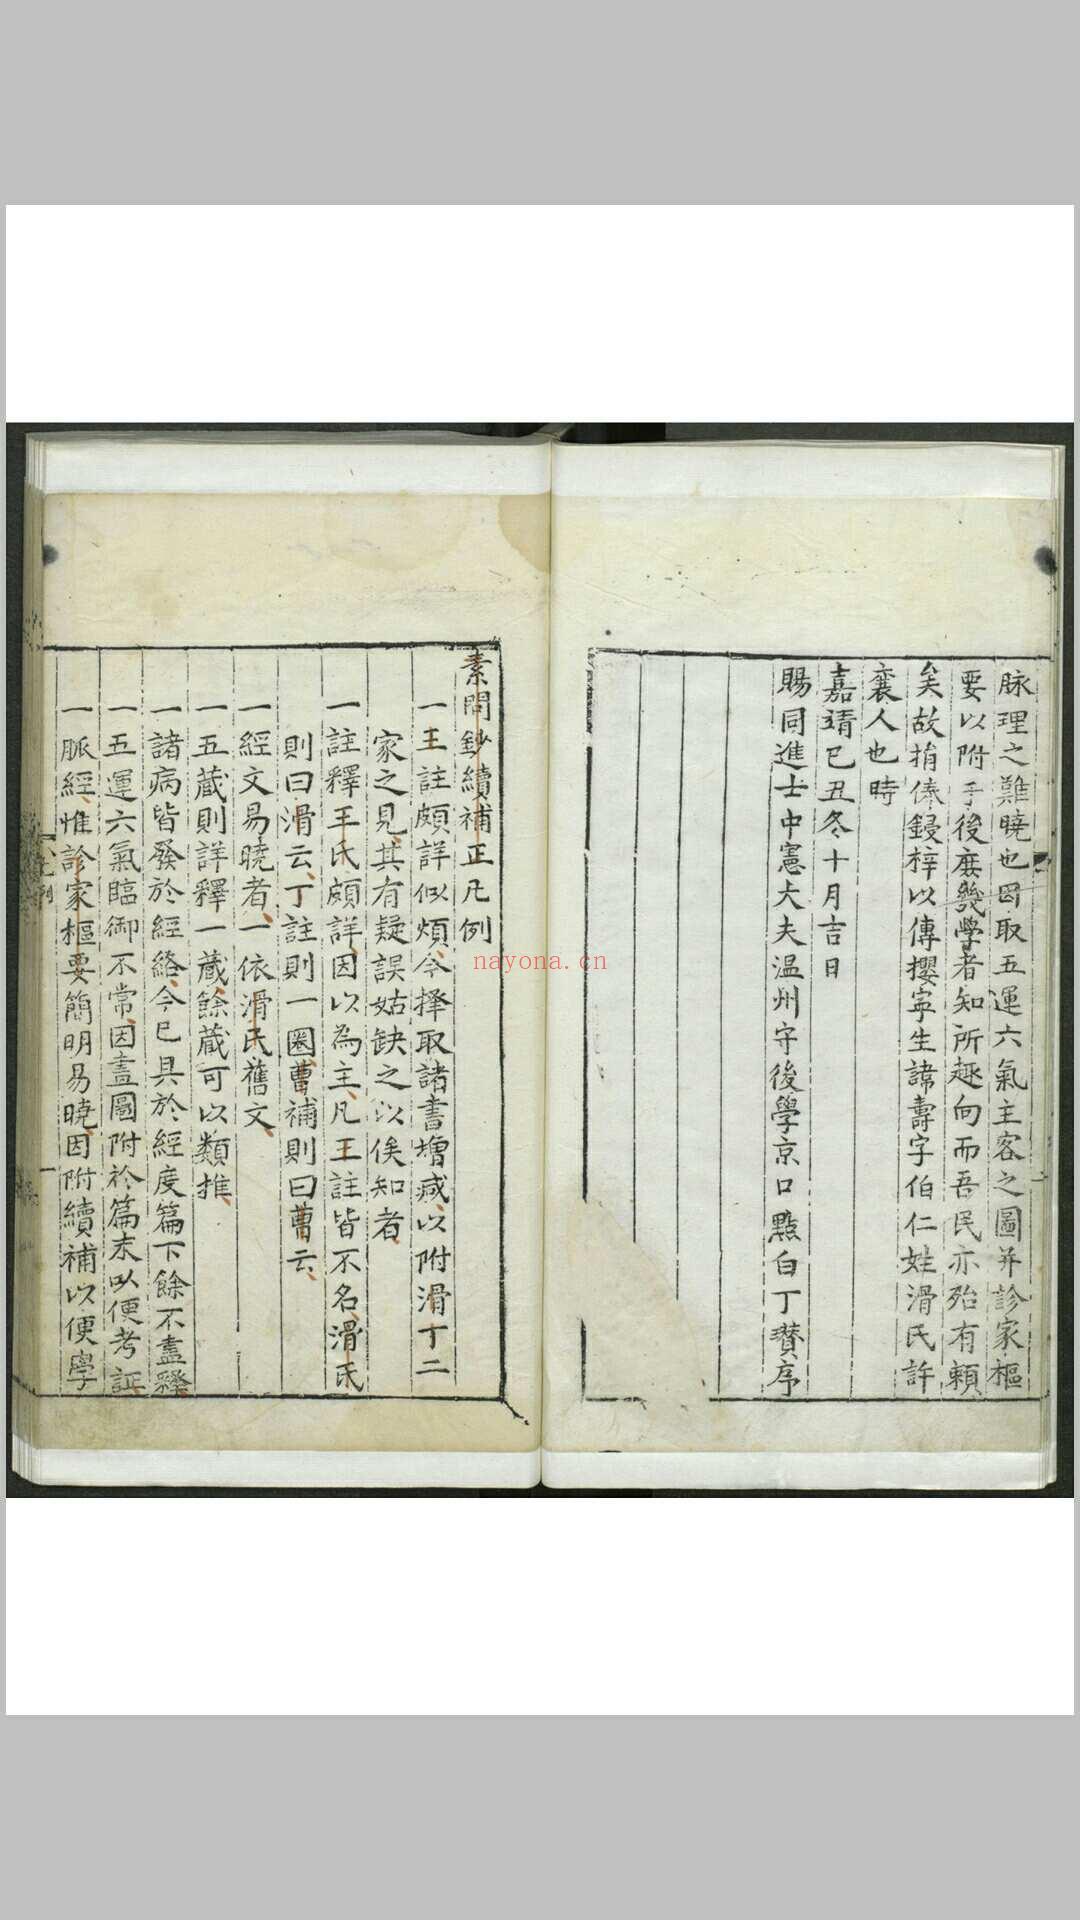 脉理之難曉也図取五運六氣主客之圖并診家樞
要以附于後庶幾學者知所趣向而吾民亦殆有賴
矣故捐俸鋟梓以傳攖寧生諱壽字伯仁姓滑氏許
襄人也時
嘉靖己丑冬十月吉日
賜同進士中憲大夫温州守後學京口點白丁瓚序
素問鈔續補正凡例
一王註頗詳似煩今擇取諸書增减以附滑丁二
家之見其有疑誤姑缺之以俟知者
一註釋王氏頗詳因以為主凡王註皆不名滑氏
則曰滑云丁註則一圈曹補則曰曹云
一經文易曉者一依滑氏舊文
一五藏則詳釋一藏餘藏可以類推
一諸病皆發於經絡今已具於經度篇下餘不盡釋
一五運六氣臨御不常因畫圖附於篇末以便考証
一脈經惟診家樞要簡明易曉因附續補以便學
nayona.cn